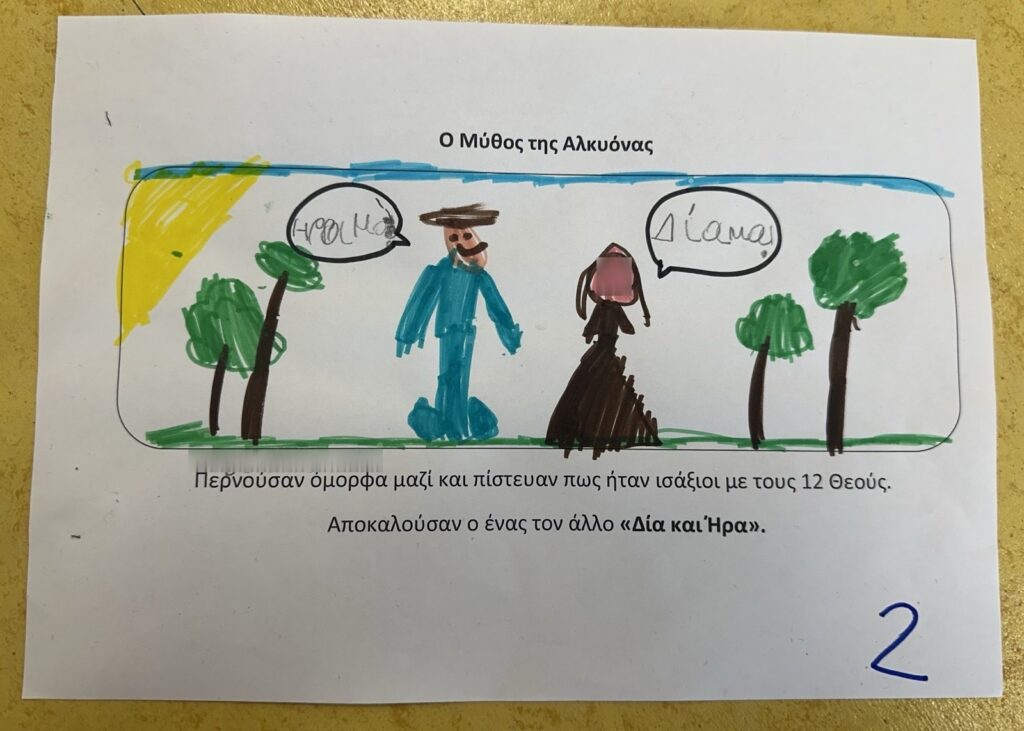 Ο Μύθος της Αλκυόνας
Ηρα μΜ
Δία μου
Περνούσαν όμορφα μαζί και πίστευαν πως ήταν ισάξιοι με τους 12 Θεούς.
Αποκαλούσαν ο ένας τον άλλο «Δία και Ήρα».
2